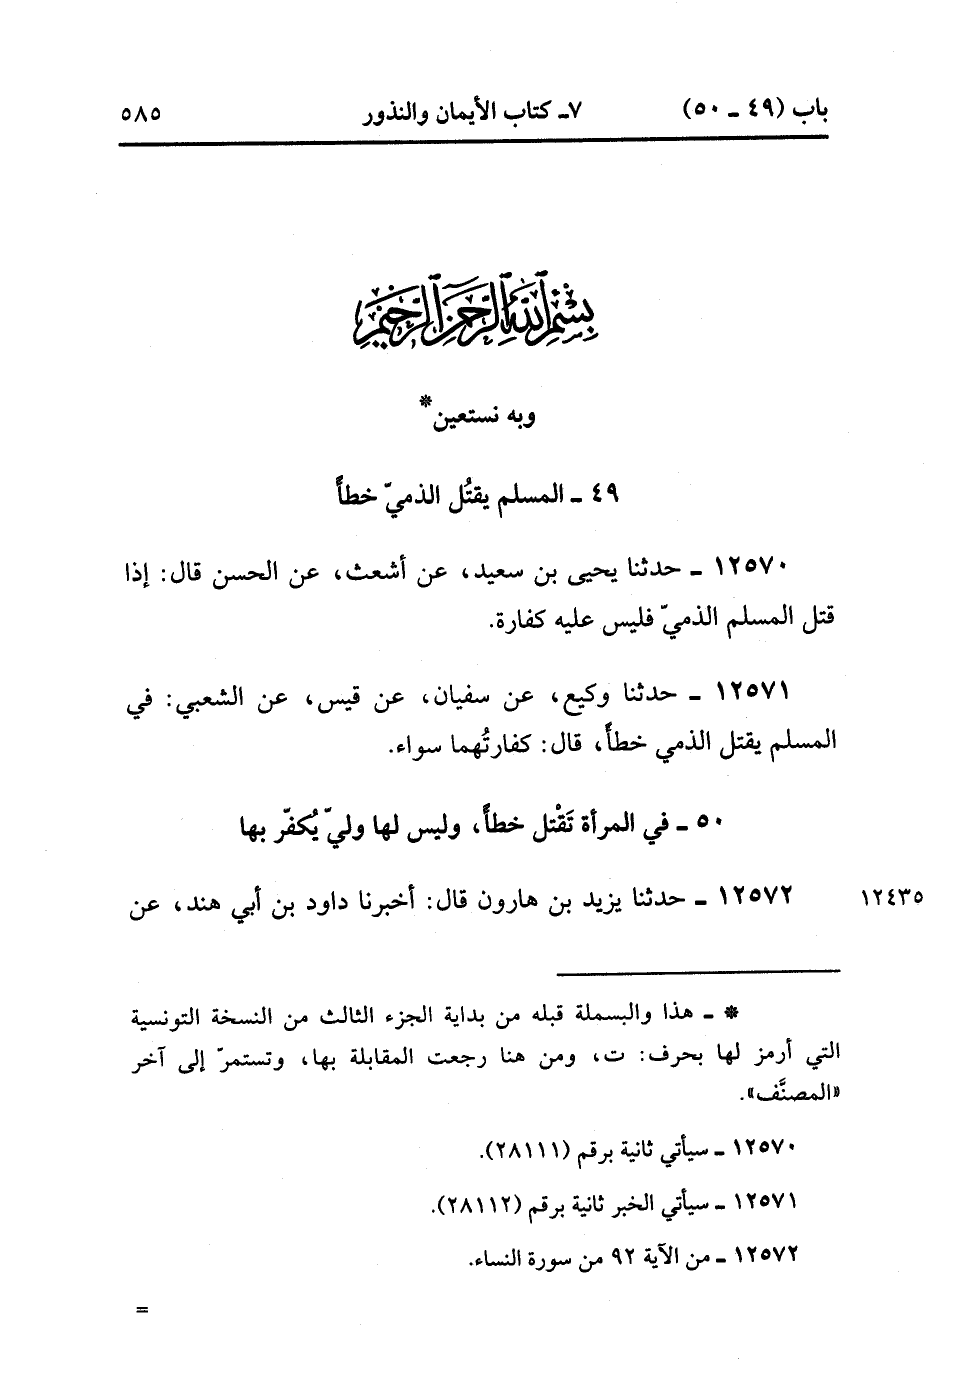 باب (٤٩ ـ ٥٠) ٧ـ كتاب الأيمان والنذور ٥٨٥
بسم الله الرحمن الرحيم
وبه نستعين*
٤٩ ـ المسلم يقتُل الذميّ خطأً
١٢٥٧٠ ـ حدثنا يحيى بن سعيد، عن أشعث، عن الحسن قال: إذا
قتل المسلم الذميّ فليس عليه كفارة.
١٢٥٧١ ـ حدثنا وكيع، عن سفيان، عن قيس، عن الشعبي: في
المسلم يقتل الذمي خطأً، قال: كفارتُهما سواء.
٥٠ ـ في المرأة تَقْتل خطأً، وليس لها وليّ يُكفّر بها
١٢٤٣٥ ١٢٥٧٢ ـ حدثنا يزيد بن هارون قال: أخبرنا داود بن أبي هند، عن
* ـ هذا والبسملة قبله من بداية الجزء الثالث من النسخة التونسية
التي أرمز لها بحرف: ت، ومن هنا رجعت المقابلة بها، وتستمرّ إلى آخر
«المصنَّف».
١٢٥٧٠ ـ سيأتي ثانية برقم (٢٨١١١).
١٢٥٧١ ـ سيأتي الخبر ثانية برقم (٢٨١١٢).
١٢٥٧٢ ـ من الآية ٩٢ من سورة النساء.
=